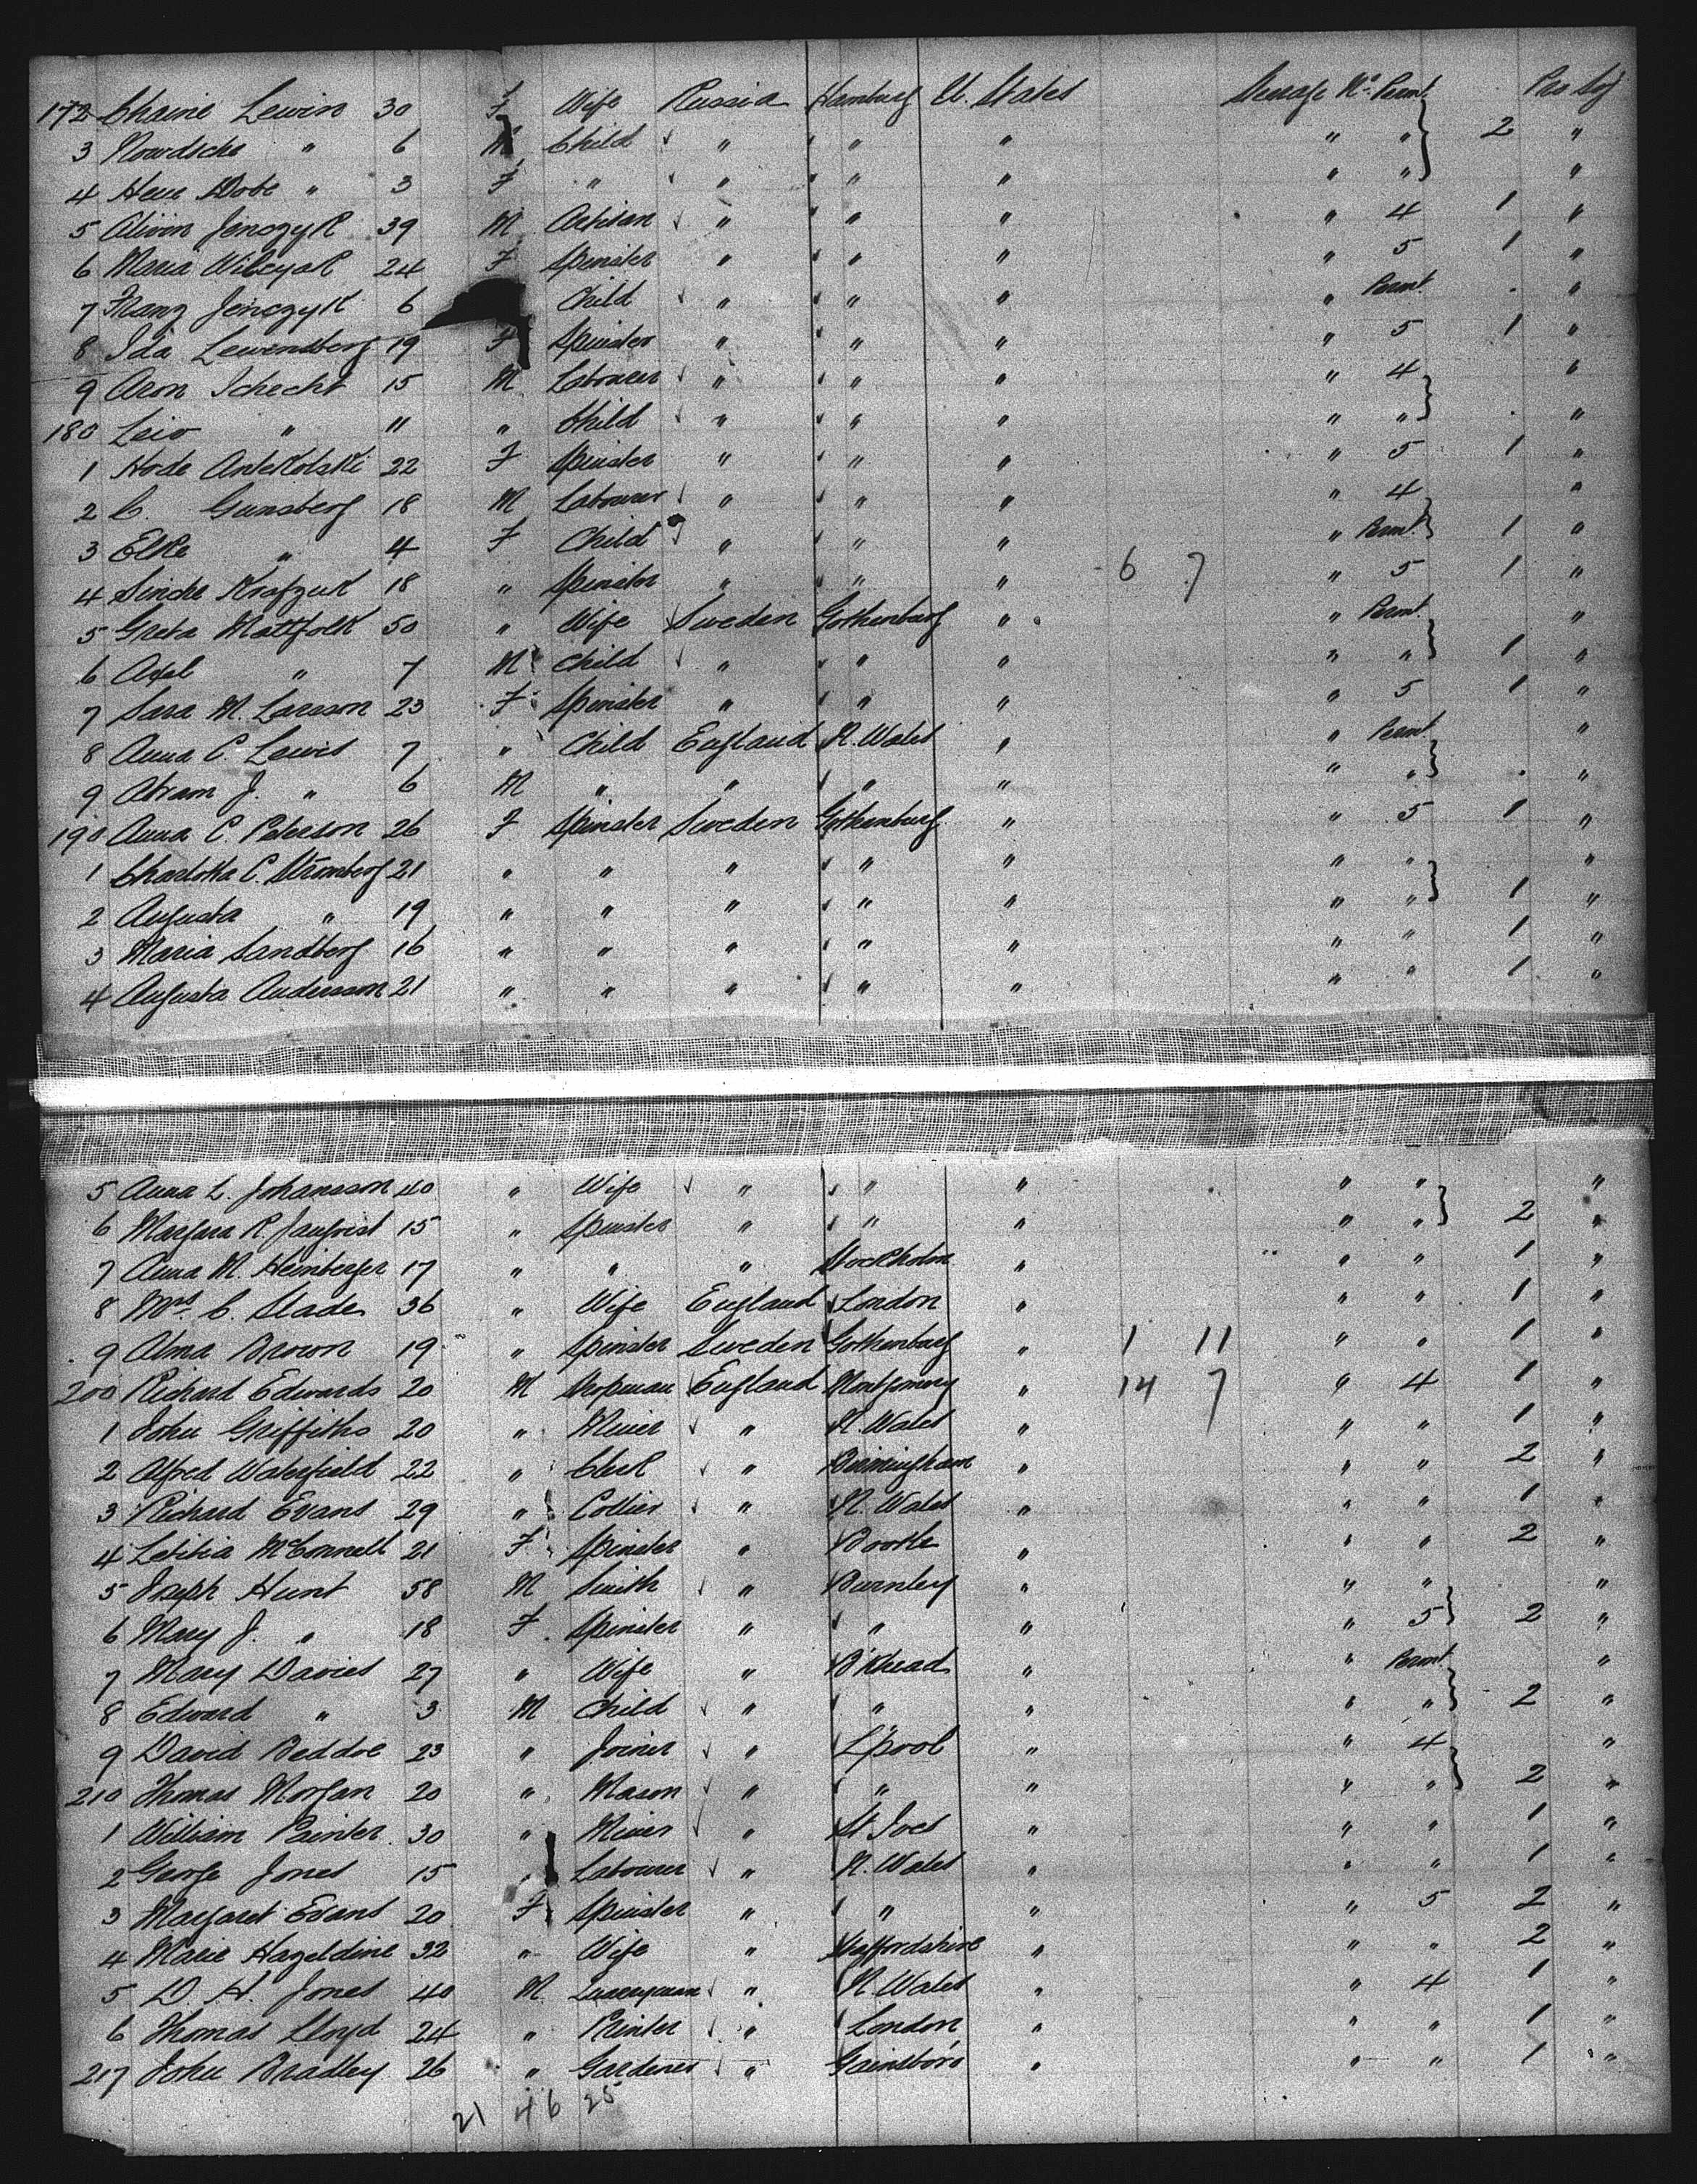 172 Chaine Lewin 30 F Wife Russia Hamburg U. States Steerage No. Permt. Pro Soj
3 " 6 M Child " " " " " 2 "
4 " 3 F " " " " " " "
5 39 M Artisan " " " " 4 1 "
6 Maria 24 F Spinster " " " " 5 1 "
7 Franz Jenczyk 6 Child " " " " Permt. "
8 Ida Lewensberg 19 F Spinster " " " " 5 1 "
9 Aron Schecht 15 M Labourer " " " " 4 "
180 " 11 " Child " " " " " "
1 Hode Antekolski 22 F Spinster " " " " 5 1 "
2 C. Gunsberg 18 M Labourer " " " " 4 "
3 Elke " 4 F Child " " " " Permt. 1 "
4 18 " Spinster " " " 6 7 " 5 1 "
5 Greta Mattfolk 50 " Wife Sweden Gothenburg " " Permt. "
6 Axel " 7 M Child " " " " " 1 "
7 Sara M. Larsson 23 F Spinster " " " " 5 1 "
8 Anna C. Lewis 7 " Child England N. Wales " " Permt. "
9 Abram J. " 6 M " " " " " " "
190 Anna C. Peterson 26 F Spinster Sweden Gothenburg " " 5 1 "
1 Charlotta C. Stromberg 21 " " " " " " " "
2 Augusta " 19 " " " " " " " 1 "
3 Maria Sandberg 16 " " " " " " " 1 "
4 Augusta Andersson 21 " " " " " " " 1 "
5 Anna L. Johansson 40 " Wife " " " " " "
6 15 " Spinster " " " " " 2 "
7 Anna M. Heinberger 17 " " " Stockholm " " " 1 "
8 Mrs. C. Slade 36 " Wife England London " " " 1 "
9 Alma Brown 19 " Spinster Sweden Gothenburg " 1 11 " " 1 "
200 Richard Edwards 20 M Shopman England Montgomery " 14 7 " 4 1 "
1 John Griffiths 20 " Miner " N. Wales " " " 1 "
2 Alfred Waterfield 22 " Clerk " Birmingham " " " 2 "
3 Richard Evans 29 " Collier " N. Wales " " " 1 "
4 Letitia McConnell 21 F Spinster " Bootle " " " 2 "
5 Joseph Hunt 58 M Smith " Burnley " " " "
6 Mary J. " 18 F Spinster " " " " 5 2 "
7 Mary Davies 27 " Wife " B'Khead " " Permt. "
8 Edward " 3 M Child " " " " " 2 "
9 David Beddoe 23 " Joiner " L'pool " " 4 "
210 Thomas Morgan 20 " Mason " " " " " 2 "
1 William Painter 30 " Miner " St Ives " " " 1 "
2 George Jones 15 " Labourer " N. Wales " " " 1 "
3 Margaret Evans 20 F Spinster " " " " 5 2 "
4 Marie Hazeldine 32 " Wife " Staffordshire " " " 2 "
5 D. H. Jones 40 M Quarryman " N. Wales " " 4 1 "
6 Thomas Lloyd 24 " Printer " London " " " 1 "
217 John Bradley 26 " Gardener " Gainsboro " " " 1 "
21 46 25